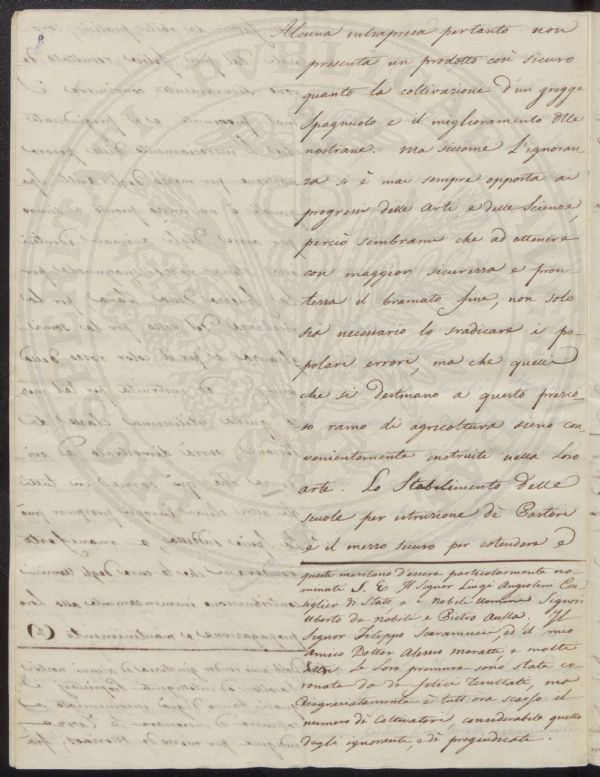 Alcuna intrapresa pertanto non
presenta un prodotto così sicuro
quanto la coltivazione d'un gregge
Spagnuolo e il miglioramento delle
nostrane. Ma siccome l'ignoran-
za si è mai sempre opposta ai
progressi delle Arti, e delle Scienze,
perciò sembrami che ad ottenere
con maggior sicurezza e pron-
tezza il bramato fine, non solo
sia necessario lo sradicare i po-
polari errori, ma che quelli
che si destinano a questo prezio-
so ramo di agricoltura sieno con-
venientemente instruiti nella loro
arte. Lo Stabilimento delle
scuole per istruzione de' Pastori
è il mezzo sicuro per estendere e
queste meritano d'essere particolarmente no-
minate S. E. Il Signor Luigi Angiolini Con-
siglier di Stato e i Nobili Uomini Signori
Uberto de Nobili e Pietro Aulla. Il
Signor Filippo Scaramucci, ed il mio
Amico Dottor Alessio Moratti, e molti
altri. Le loro premure sono state co-
ronate da felici resultati, ma
disgraziatamente è tutt'ora scarso il
numero di Coltivatori, considerabile quello
degli ignoranti, e de' pregiudicati.